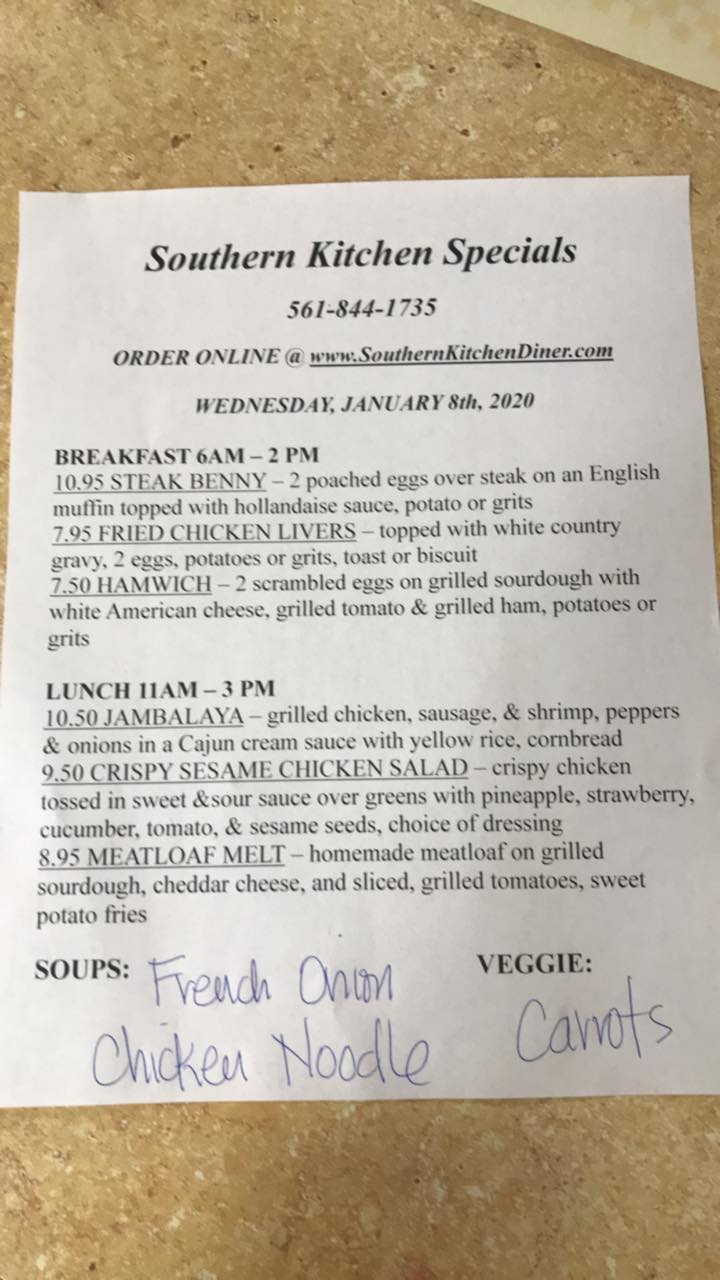 Southern Kitchen Specials
561-844-1735
ORDER ONLINE @ www.SouthernKitchenDiner.com
WEDNESDAY, JANUARY 8th, 2020
BREAKFAST 6AM – 2 PM
10.95 STEAK BENNY – 2 poached eggs over steak on an English
muffin topped with hollandaise sauce, potato or grits
7.95 FRIED CHICKEN LIVERS – topped with white country
gravy, 2 eggs, potatoes or grits, toast or biscuit
7.50 HAMWICH – 2 scrambled eggs on grilled sourdough with
white American cheese, grilled tomato & grilled ham, potatoes or
grits
LUNCH 11AM – 3 PM
10.50 JAMBALAYA – grilled chicken, sausage, & shrimp, peppers
& onions in a Cajun cream sauce with yellow rice, cornbread
9.50 CRISPY SESAME CHICKEN SALAD – crispy chicken
tossed in sweet &sour sauce over greens with pineapple, strawberry,
cucumber, tomato, & sesame seeds, choice of dressing
8.95 MEATLOAF MELT – homemade meatloaf on grilled
sourdough, cheddar cheese, and sliced, grilled tomatoes, sweet
potato fries
SOUPS: French Onion
Chicken Noodle
VEGGIE:
Carrots